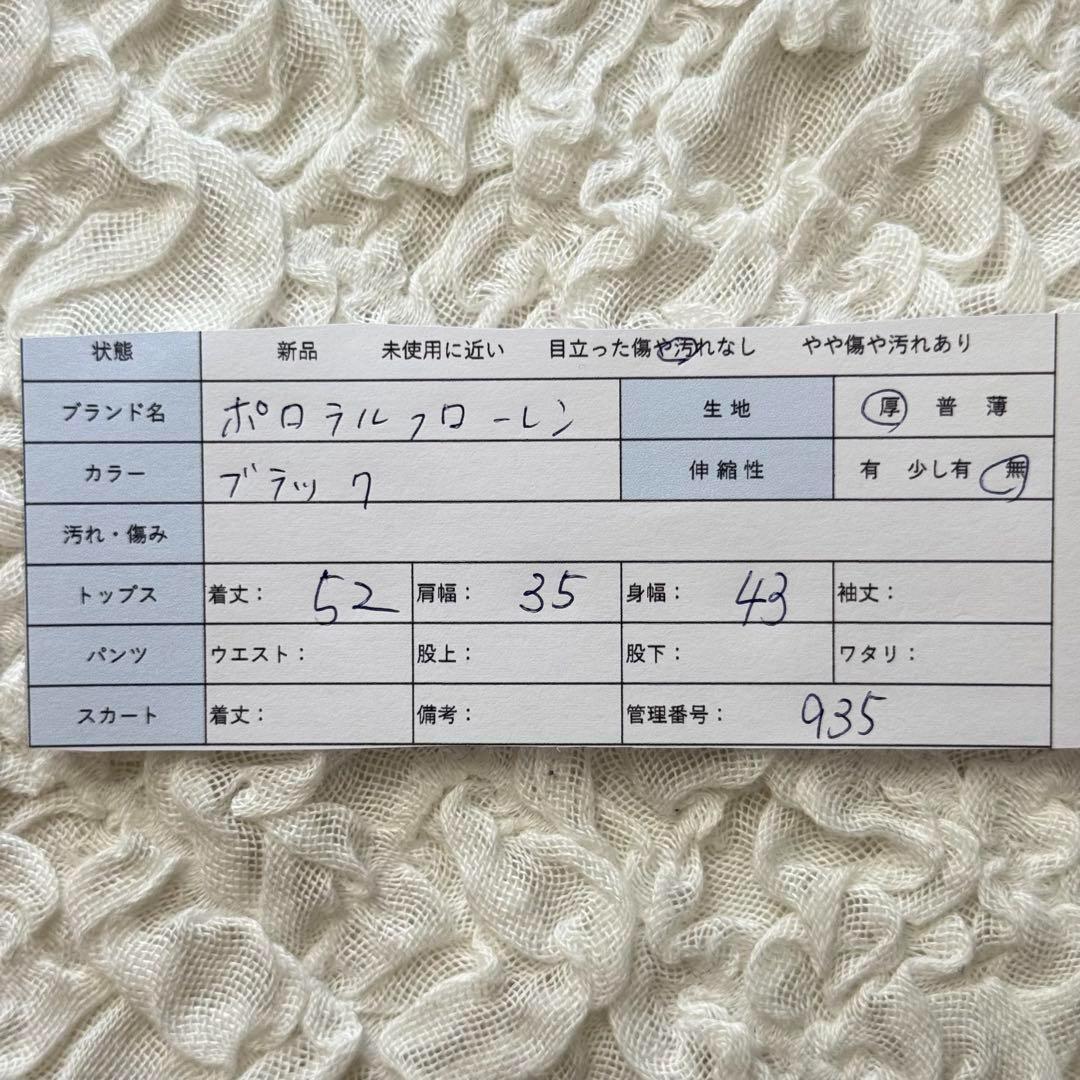 状態 新品 未使用に近い 目立った傷や汚れなし やや傷や汚れあり
ブランド名 ポロラルフローレン 生地 厚 普 薄
カラー ブラック 伸縮性 有 少し有 無
汚れ・傷み
トップス 着丈： 52 肩幅： 35 身幅： 43 袖丈：
パンツ ウエスト： 股上： 股下： ワタリ：
スカート 着丈： 備考： 管理番号： 935